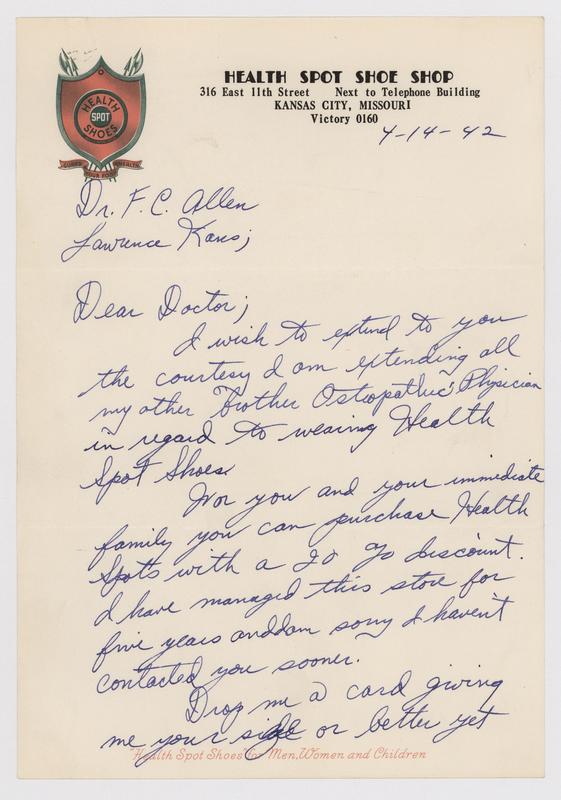 HEALTH SPOT SHOE SHOP
316 East 11th Street Next to Telephone Building
KANSAS CITY, MISSOURI
Victory 0160
HEALTH
SPOT
SHOES
GUARD YOUR FOOT HEALTH
4-14-42
Dr. F. C. Allen
Lawrence Kans;
Dear Doctor;
I wish to extend to you
the courtesy I am extending all
my other "brother Osteopathic" Physician
in regard to wearing Health
Spot Shoes.
For you and your immediate
family you can purchase Health
Spots with a 20 % discount.
I have managed this store for
five years and am sorry I haven't
contacted you sooner.
Drop me a card giving
me your size or better yet
"Health Spot Shoes" for Men, Women and Children